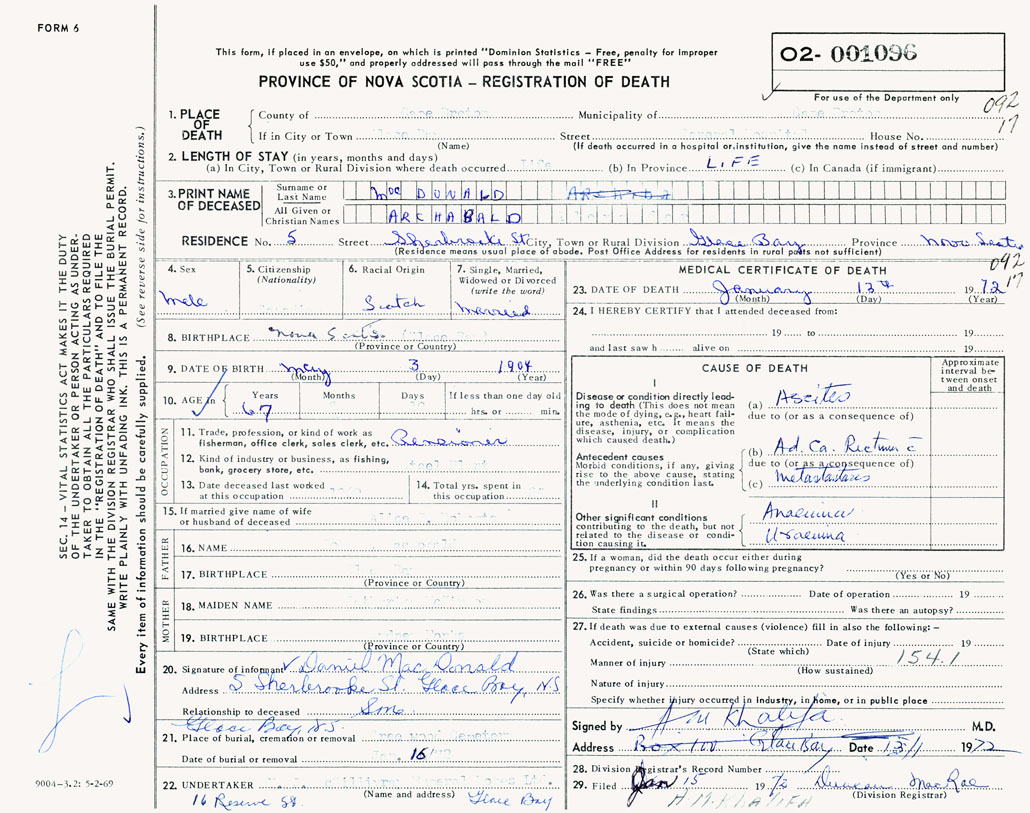 FORM 6
This form, if placed in an envelope, on which is printed "Dominion Statistics – Free, penalty for improper
use $50," and properly addressed will pass through the mail "FREE"
PROVINCE OF NOVA SCOTIA – REGISTRATION OF DEATH
02- 001096
For use of the Department only
092
17
1. PLACE OF DEATH
County of Cape Breton Municipality of Cape Breton
If in City or Town Street General Hospital House No.
(Name) (If death occurred in a hospital or institution, give the name instead of street and number)
2. LENGTH OF STAY (in years, months and days)
(a) In City, Town or Rural Division where death occurred Life (b) In Province LIFE (c) In Canada (if immigrant)
3. PRINT NAME OF DECEASED
Surname or Last Name Mac DONALD
All Given or Christian Names ARCHABALD
RESIDENCE No. 5 Street Sherbrooke St City, Town or Rural Division Glace Bay Province Nova Scotia
(Residence means usual place of abode. Post Office Address for residents in rural parts not sufficient)
4. Sex Male
5. Citizenship (Nationality)
6. Racial Origin Scotch
7. Single, Married, Widowed or Divorced (write the word) Married
8. BIRTHPLACE Nova Scotia
(Province or Country)
9. DATE OF BIRTH May 3 1904
(Month) (Day) (Year)
10. AGE in Years 67 Months Days If less than one day old
hrs. or min.
OCCUPATION
11. Trade, profession, or kind of work as
fisherman, office clerk, sales clerk, etc. Pensioner
12. Kind of industry or business, as fishing,
bank, grocery store, etc.
13. Date deceased last worked
at this occupation
14. Total yrs. spent in
this occupation
15. If married give name of wife
or husband of deceased
FATHER
16. NAME
17. BIRTHPLACE
(Province or Country)
MOTHER
18. MAIDEN NAME
19. BIRTHPLACE
(Province or Country)
20. Signature of informant Daniel MacDonald
Address 5 Sherbrooke St. Glace Bay, N.S
Relationship to deceased Son
Glace Bay, N.S
21. Place of burial, cremation or removal
Date of burial or removal 15
22. UNDERTAKER
(Name and address)
16 Reserve St. Glace Bay
MEDICAL CERTIFICATE OF DEATH
092
17
23. DATE OF DEATH January 13th 1972
(Month) (Day) (Year)
24. I HEREBY CERTIFY that I attended deceased from:
19 to 19
and last saw h alive on 19
CAUSE OF DEATH
Approximate interval between onset and death
I
Disease or condition directly leading to death (This does not mean the mode of dying, e.g., heart failure, asthenia, etc. it means the disease, injury, or complication which caused death.)
(a) Ascites
due to (or as a consequence of)
Antecedent causes
Morbid conditions, if any, giving rise to the above cause, stating the underlying condition last.
(b) Ad. Ca. Rectum c̄
due to (or as a consequence of)
(c) metastasis
II
Other significant conditions
contributing to the death, but not related to the disease or condition causing it.
Anaemia
Uraemia
25. If a woman, did the death occur either during
pregnancy or within 90 days following pregnancy?
(Yes or No)
26. Was there a surgical operation? Date of operation 19
State findings Was there an autopsy?
27. If death was due to external causes (violence) fill in also the following: –
Accident, suicide or homicide? Date of injury 19
(State which)
Manner of injury 154.1
(How sustained)
Nature of injury
Specify whether injury occurred in industry, in home, or in public place
Signed by Khalifa M.D.
Address Box 100 Glace Bay Date 13/1 1972
28. Division Registrar's Record Number
29. Filed Jan 15 1972 Duncan MacRae
(Division Registrar)
A.M. KHALIFA
SEC. 14 – VITAL STATISTICS ACT MAKES IT THE DUTY
OF THE UNDERTAKER OR PERSON ACTING AS UNDER-
TAKER TO OBTAIN ALL THE PARTICULARS REQUIRED
IN THE "REGISTRATION OF DEATH" AND TO FILE THE
SAME WITH THE DIVISION REGISTRAR WHO SHALL ISSUE THE BURIAL PERMIT.
WRITE PLAINLY WITH UNFADING INK. THIS IS A PERMANENT RECORD.
Every item of information should be carefully supplied. (See reverse side for instructions.)
9004-3.2: 5-2-69